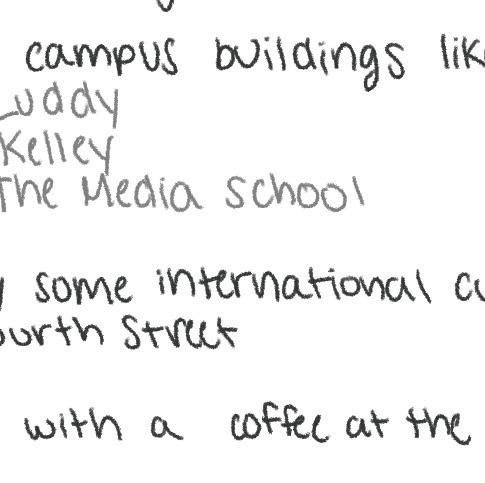 campus buildings like
Luddy
Kelley
The Media School
some international
Fourth Street
with a coffee at the